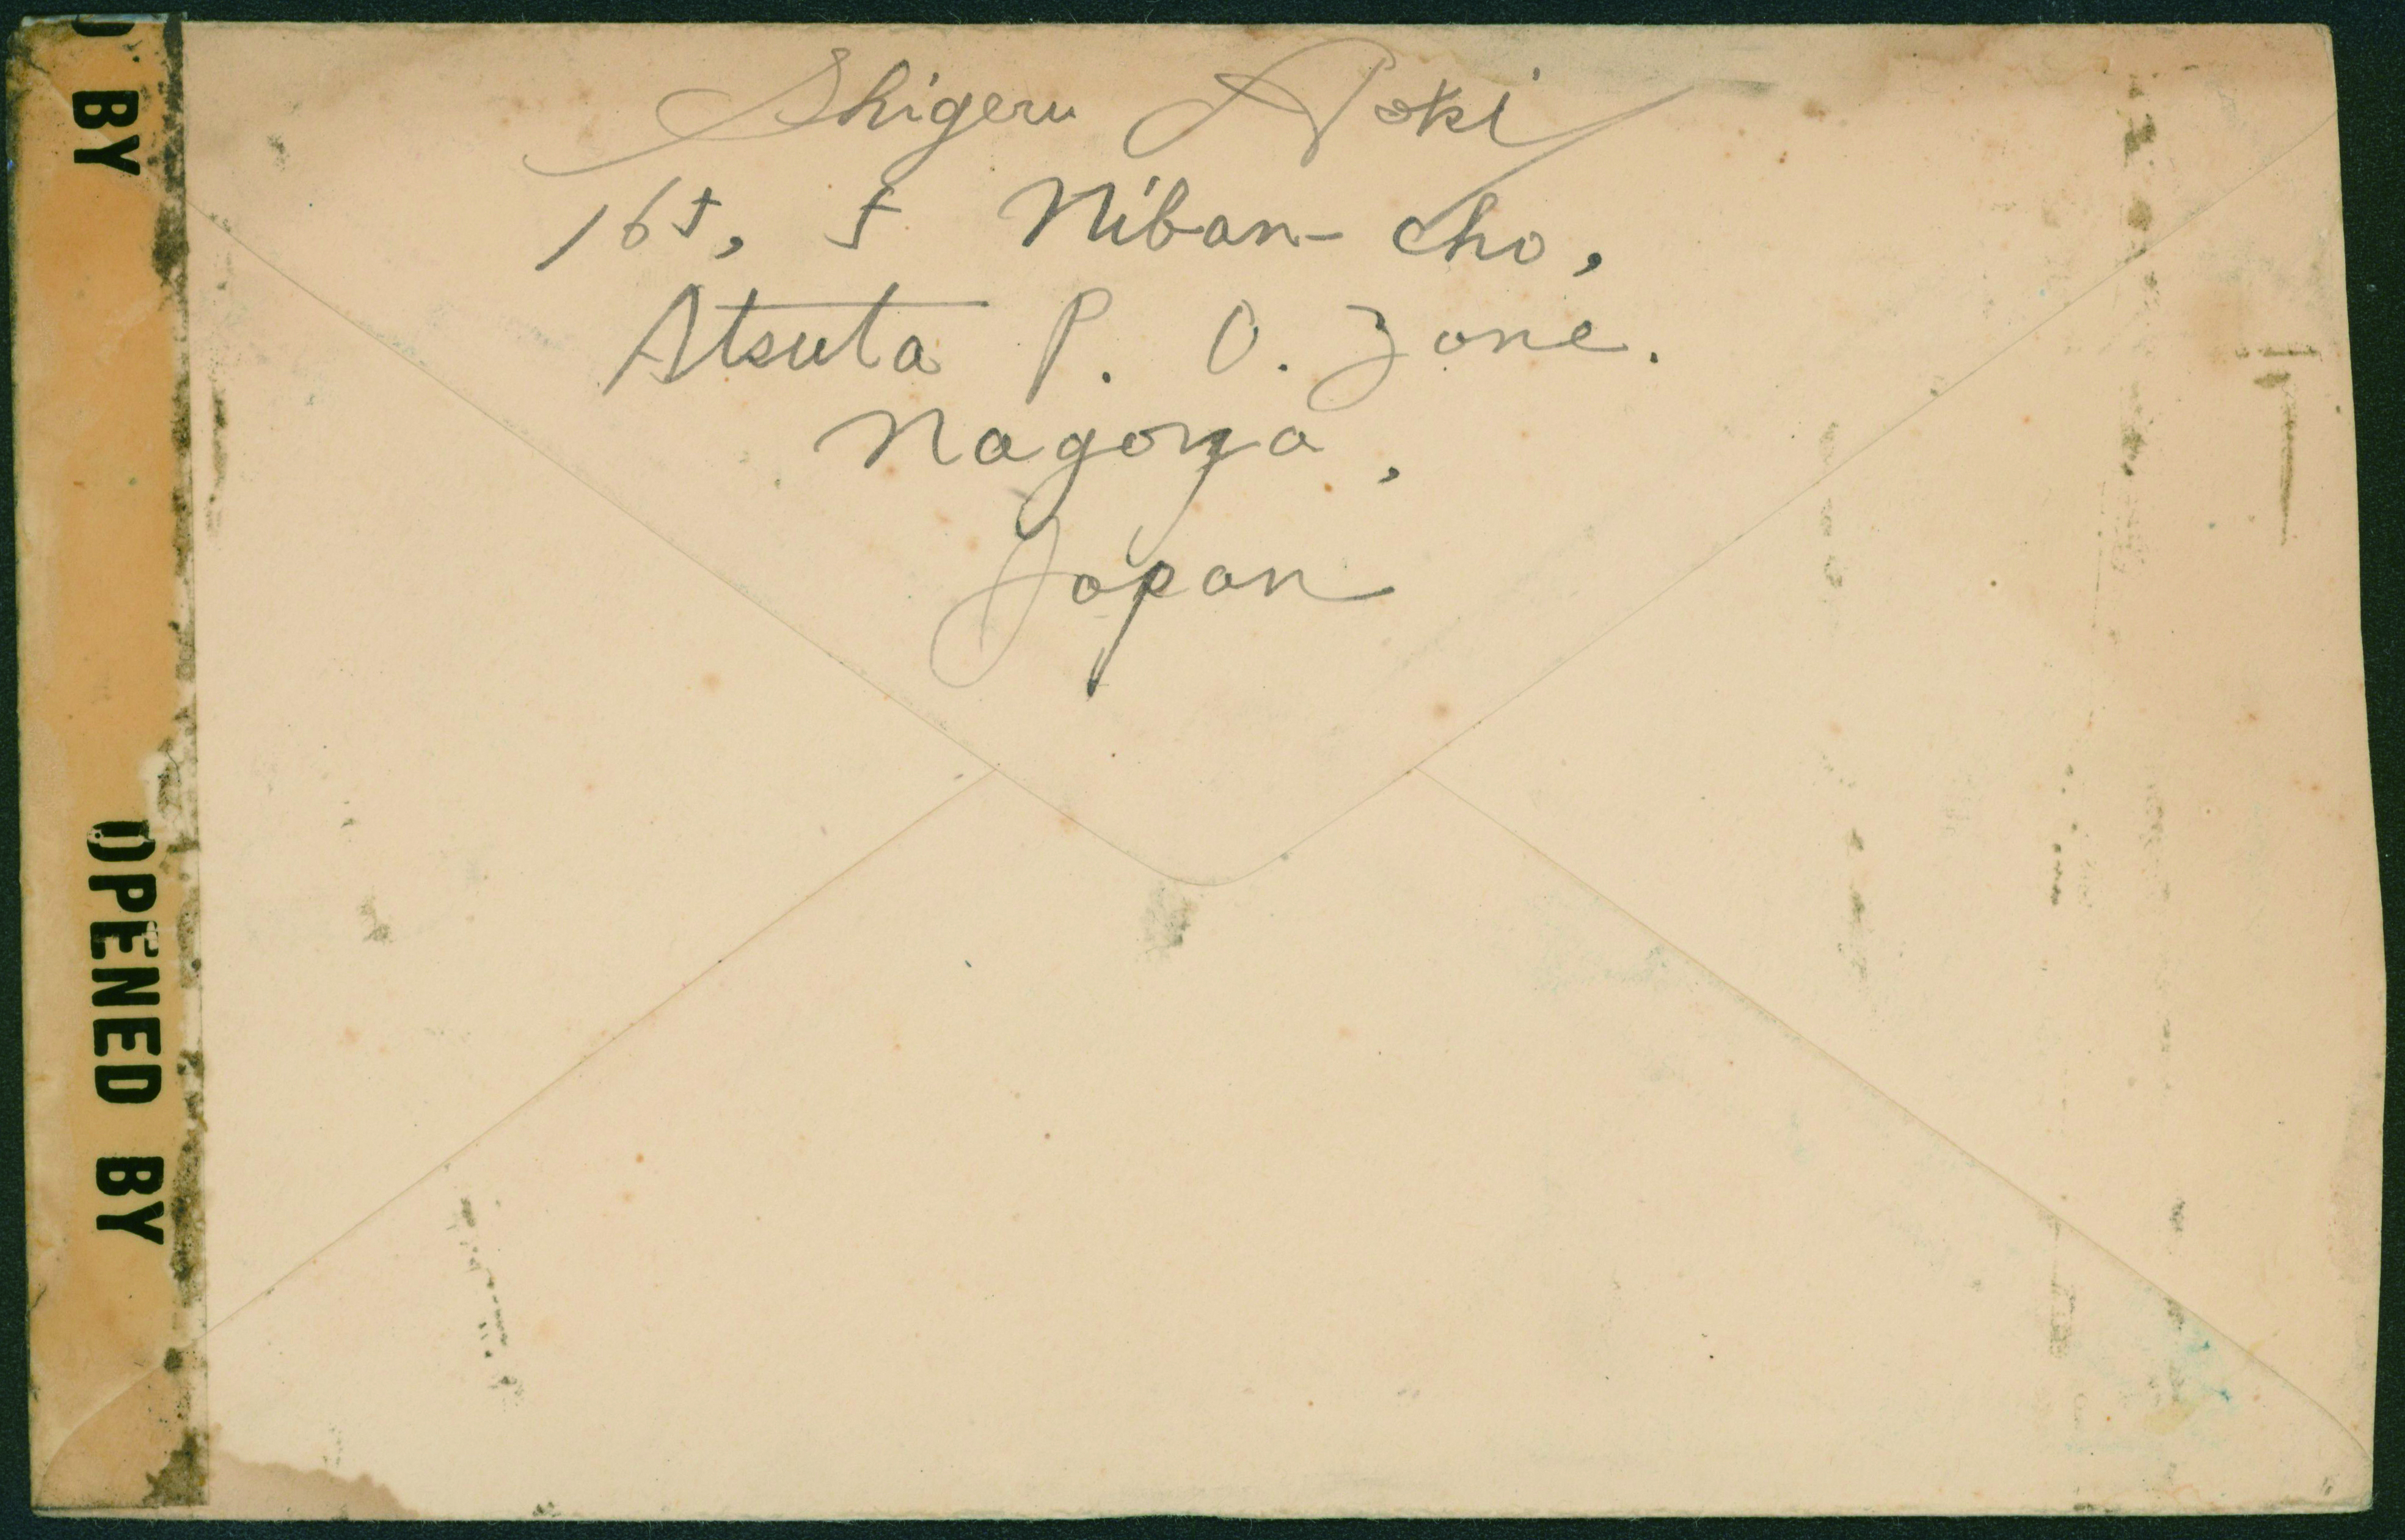 Shigeru Aoki
165, 5 Niban-cho,
Atsuta P. O. Zone.
Nagoya,
Japan
D BY
OPENED BY